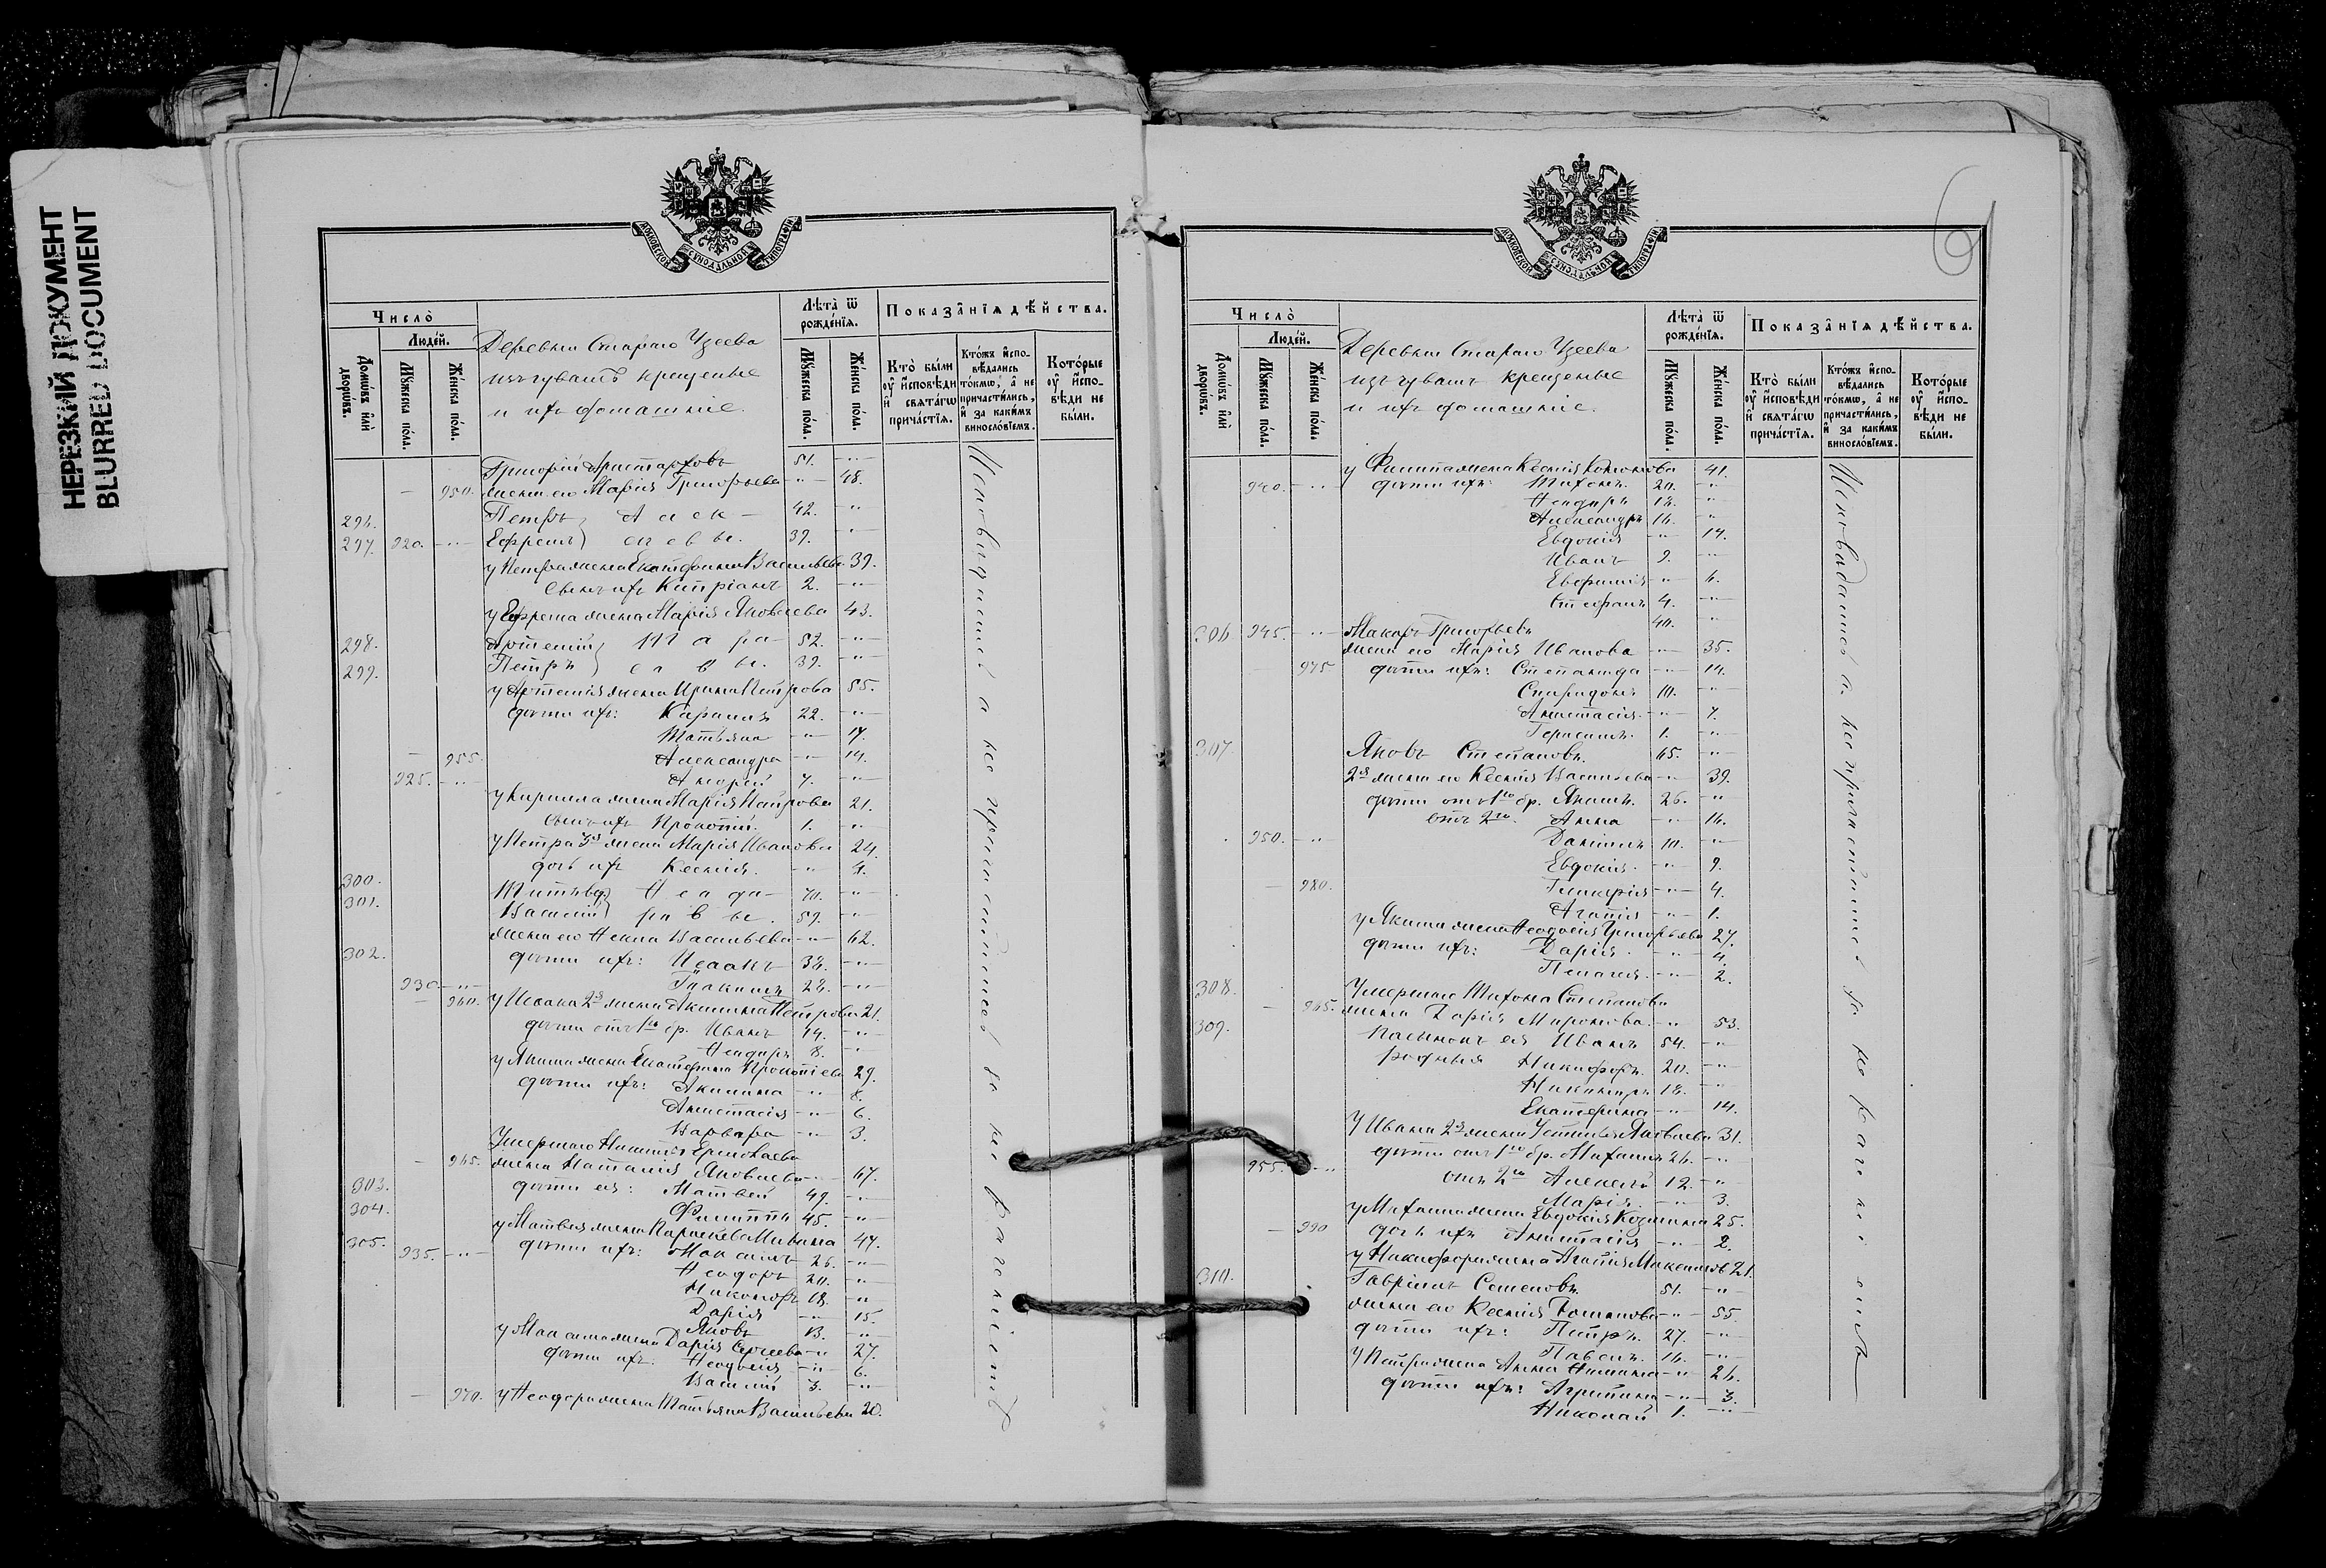 НЕРЕЗКИЙ ДОКУМЕНТ
BLURRED DOCUMENT
МОСКОВСКОЙ СѴНОДАЛЬНОЙ ТИПОГРАФІИ
Число̀
Люде́й.
Домѡ́въ илѝ дворѡ́въ.
Мꙋ́жеска по́ла.
Же́нска по́ла.
Деревни Стараго Узеева
изъ чувашъ крещеные
и ихъ домашніе.
Лѣта̀ ѿ рожде́нїѧ.
Мꙋ́жеска по́ла.
Же́нска по́ла.
Показа̂нїѧ дѣ́йства.
Кто̀ бы́ли ᲂу҆ и҆́сповѣди и҆ свѧта́гѡ прича́стїѧ.
Кто́жъ и҆спо-вѣ́дались то́кмѡ, а҆ не причасти́лись, и҆ за каки́мъ винносло́вїемъ.
Кото́рые ᲂу҆ и҆́спо-вѣди не бы́ли.
Григорій Аристарховъ 51. -"-
— 950. жена его Марія Григорьева -"- 48.
296. Петръ } Алек- 42. -"
297. 920. -"- Ефремъ } сѣевы. 39. -"
у Петра жена Екатерина Васильева 39.
сынъ ихъ Кипріанъ 2. -"-
у Ефрема жена Марія Яковлева 43.
298. Артемій } Мара- 52. -"-
299. Петръ } евы. 39. -"-
у Артемія жена Ирина Петрова 55.
дѣти ихъ: Кириллъ 22. -"-
Татьяна -"- 17.
— 955. Александра -"- 14.
925. -"- Андрей 7. -"-
у Кирилла жена Марія Петрова 21.
сынъ ихъ Прокопій. 1. -"-
у Петра 3я жена Марія Иванова 24.
дочь ихъ Ксенія. -"- 4.
300. Ѳеодо- 70. -"-
301. Василій } ровы. 59. -"-
жена его Васильева -"- 62.
302. дѣти ихъ: Исаакъ 38. -"-
930 -"- Іоакимъ 28. -"-
— 960. у Исаака 2я жена Акилина Петрова 21.
дѣти отъ 1го бр. Иванъ 14. -"-
Ѳеодоръ 8. -"-
у Якима жена Екатерина Прокопіева 29.
дѣти ихъ: Акилина -"- 8.
Анастасія -"- 6.
Варвара -"- 3.
Умершаго Никиты Ермолаева
— 965. жена Наталія Яковлева -"- 67.
303. дѣти ея: Матвей 49. -"-
304. Филиппъ 45. -"-
у Матвея жена 47.
305. 935. -"- дѣти ихъ: Максимъ 26. -"-
Ѳеодоръ 20. -"-
Никаноръ 18. -"
Дарія -"- 15.
Яковъ 13. -"-
у Максима жена Дарія Сергеева -" 27.
дѣти ихъ: Ѳеодосія -"- 6.
Василій 3. -"-
— 970. у Ѳеодора жена Татьяна Васильева 20.
Исповѣдались а не причастились за не раченіемъ
МОСКОВСКОЙ СѴНОДАЛЬНОЙ ТИПОГРАФІИ
Число̀
Люде́й.
Домѡ́въ илѝ дворѡ́въ.
Мꙋ́жеска по́ла.
Же́нска по́ла.
Деревни Стараго Узеева
изъ чувашъ крещеные
и ихъ домашніе.
Лѣта̀ ѿ рожде́нїѧ.
Мꙋ́жеска по́ла.
Же́нска по́ла.
Показа̂нїѧ дѣ́йства.
Кто̀ бы́ли ᲂу҆ и҆́сповѣди и҆ свѧта́гѡ прича́стїѧ.
Кто́жъ и҆спо-вѣ́дались то́кмѡ, а҆ не причасти́лись, и҆ за каки́мъ винносло́вїемъ.
Кото́рые ᲂу҆ и҆́спо-вѣди не бы́ли.
у Филиппа жена Ксенія 41.
940. -"- дѣти ихъ: Тихонъ. 20. -"
Ѳеодоръ 18. -"-
Александръ 16. -"
Евдокія -"- 14.
Иванъ 9. -"-
Евфимія -"- 6.
Стефанъ 4. -"-
306. 945. -"- Макаръ Григорьевъ 40. -"
жена его Марія Иванова -"- 35.
975 дѣти ихъ: Степанида -"- 14.
Спиридонъ 10. -"-
Анастасія. -"- 7.
Герасимъ. 1. -"
307. Яковъ Степановъ. 65. -"-
2я жена его Ксенія Васильева -"- 39.
дѣти отъ 1го бр. Якимъ. 26. -"
отъ 2го. Анна -"- 16.
950. -"- Даніилъ 10. -"-
Евдокія -"- 9.
— 980. Гликерія -"- 4.
Агапія -"- 1.
у Якима жена Ѳеодосія Григорьева 27.
дѣти ихъ: Дарія. -"- 4.
Пелагея. -"- 2.
308. Умершаго Тихона Степанова
— 985. жена Дарія Миронова. -" 53.
309. пасынокъ ея Иванъ 54. -"
родныя Никифоръ. 20. -"-
18. -"-
Екатерина -"- 14.
у Ивана 2я жена Устинія Яковлева 31.
дѣти отъ 1го бр. Михаилъ 26. -"-
955. -"- отъ 2го Алексей 12. -"
Марія. -"- 3.
у Михаила жена Евдокія Козмина 25.
— 990 дочь ихъ Анастасія -"- 2.
у Никифора жена Агапія 21.
310. Гавріилъ Семеновъ. 51. -"-
жена его Ксенія Романова -"- 55.
дѣти ихъ: Петръ. 27. -"-
Павелъ. 16. -"-
у Петра жена Анна -" 26.
дѣти ихъ: Агрипина -"- 3.
Николай 1. -"-
Исповѣдались а не причастились за не раченіемъ